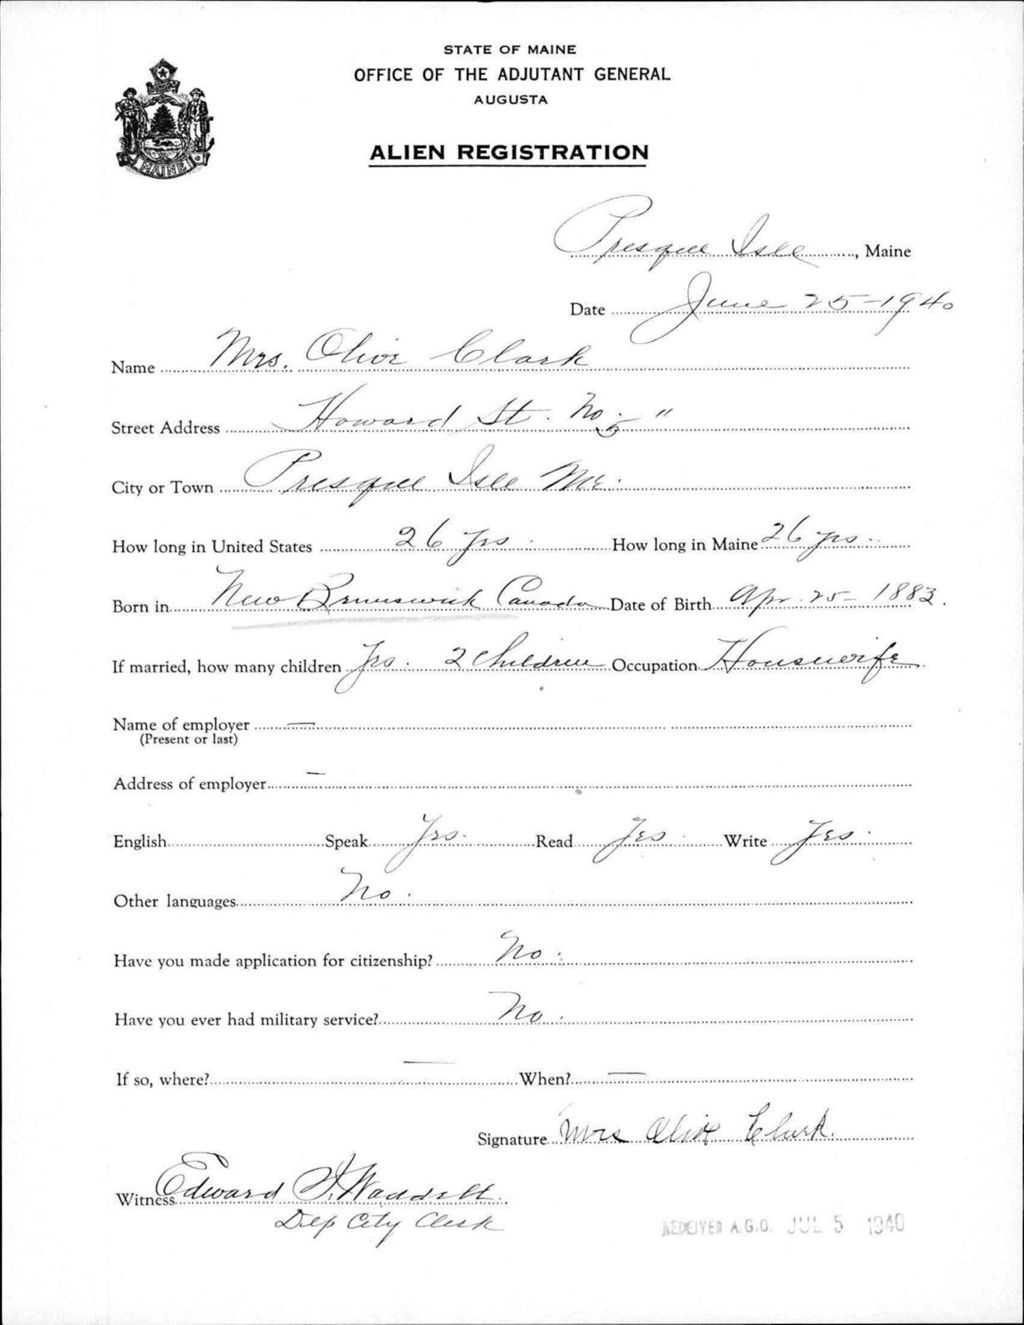 STATE OF MAINE
OFFICE OF THE ADJUTANT GENERAL
AUGUSTA
MAINE
ALIEN REGISTRATION
Presque Isle, Maine
Date June 25-1940
Name Mrs. Olive Clark
Street Address Howard St. No. 5 "
City or Town Presque Isle Me.
How long in United States 26 yrs. How long in Maine 26 yrs.
Born in New Brunswick Canada Date of Birth Apr. 25- 1883.
If married, how many children Yes. 2 Children Occupation Housewife
Name of employer —
(Present or last)
Address of employer —
English Speak Yes. Read Yes. Write Yes.
Other languages No.
Have you made application for citizenship? No.
Have you ever had military service? No.
If so, where? — When? —
Signature Mrs Olive Clark.
Witness Edward Waddell.
Dep City Clerk
RECEIVED A.G.O. JUL 5 1940